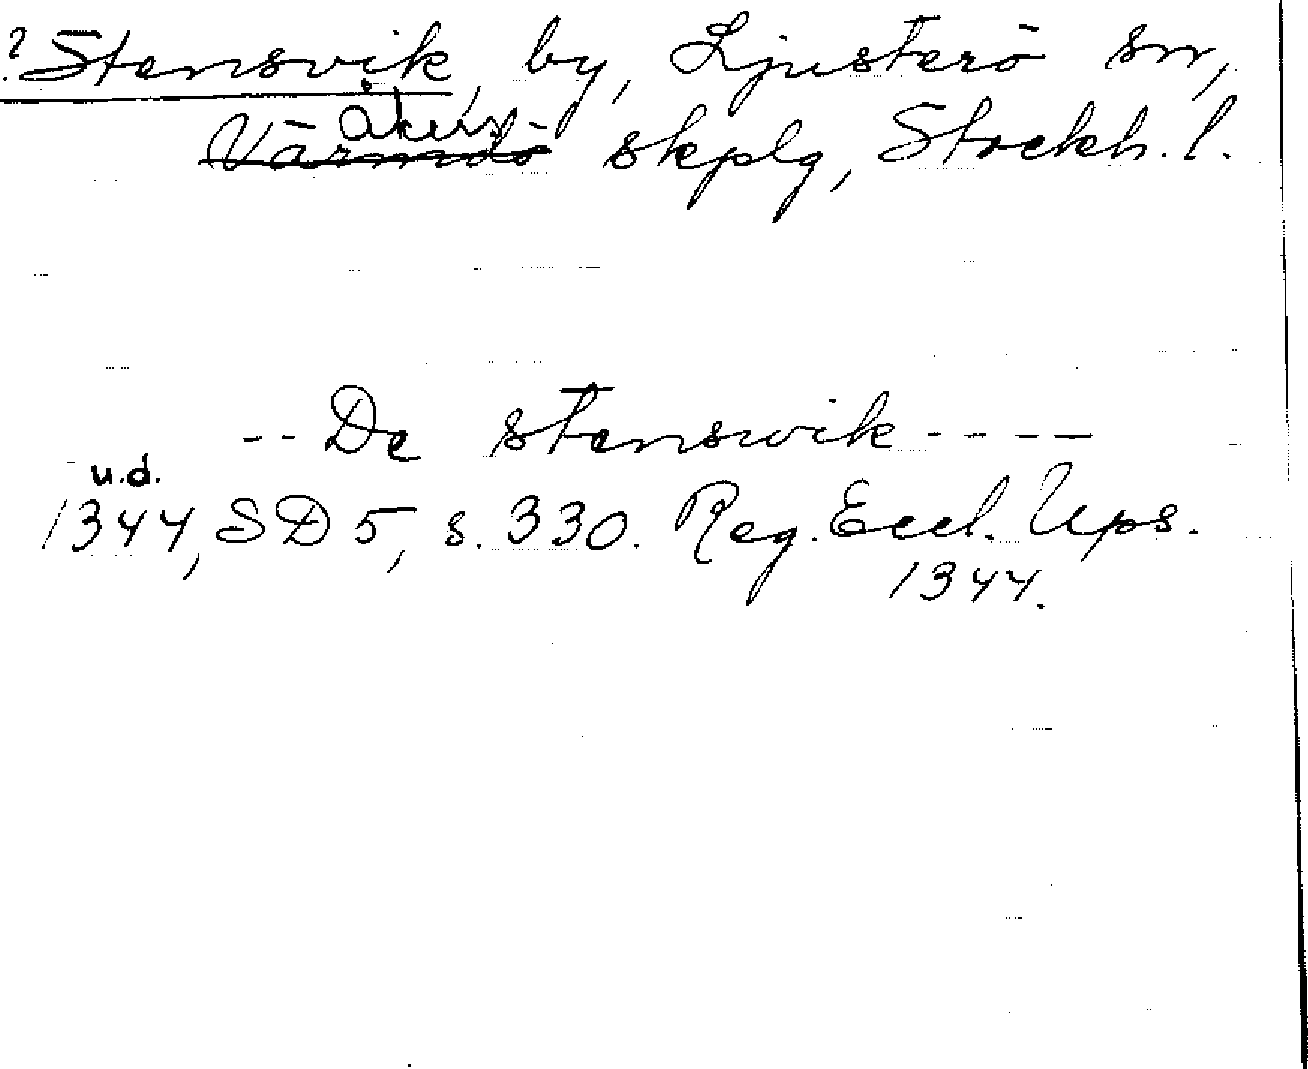 ? Stensvik, by, Ljusterö sn,
åkers
Värmdö skplg, Stockh. l.
-- De stenswik ----
u.d.
1344, SD 5, s. 330. Reg. Eccl. Ups.
1344.